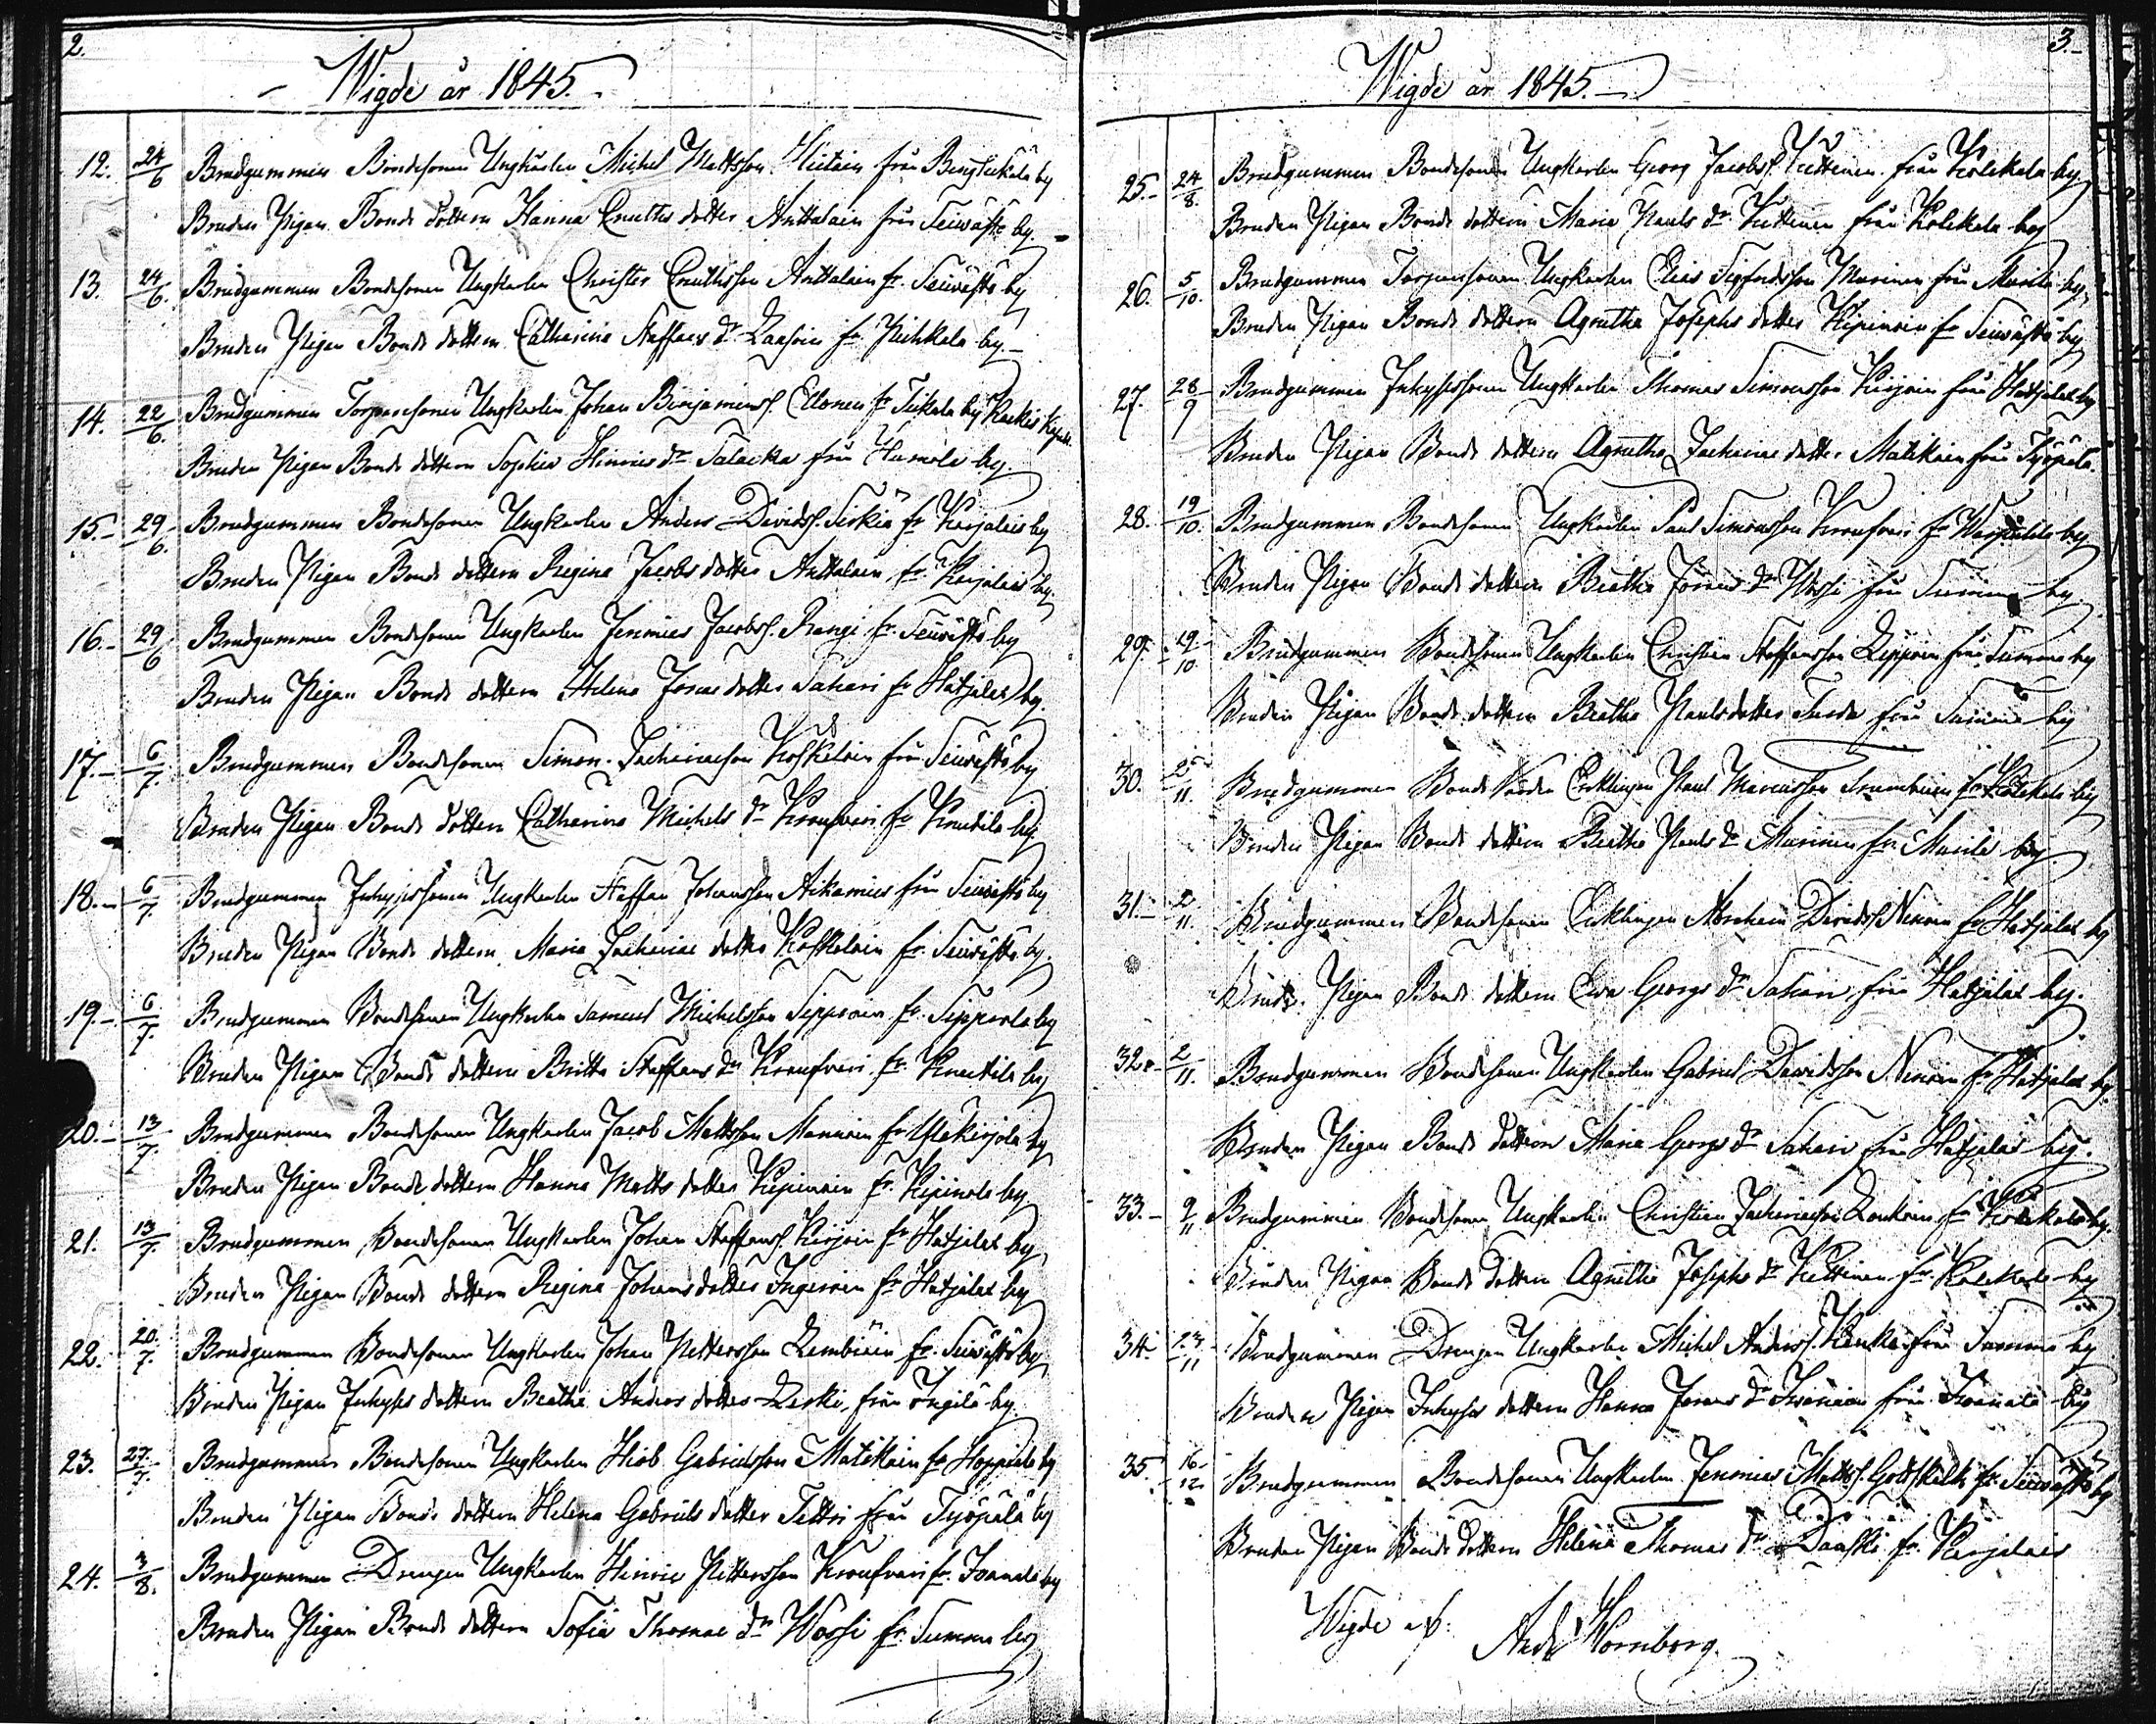 2.
Wigde år 1845.
12. 24/6 Brudgummen Bondesonen Ungkarlen Michel Mattsson från by
Bruden Pigan Bonde dottern Hanna Enuths dotter Anttalain från Seiwästö by.
13. 24/6. Brudgummen Bondesonen Ungkarlen Christer Enuthsson Anttalain fr. Seiwästö by
Bruden Pigan Bonde dottern Catharina Staffans dr fr. by
14. 22/6. Brudgummen Torparesonen Ungkarlen Johan Benjaminss. Ellonen fr by
Bruden Pigan Bonde dottern Sophia Hinrics dr Talacka från by.
15. 29/6. Brudgummen Bondesonen Ungkarlen Anders Davidss. Sirkiä fr Karjalais by
Bruden Pigan Bonde dottern Regina Jacobs dotter Anttalain fr Karjalais by.
16. 29/6 Brudgummen Bondesonen Ungkarlen Jeremias Jacobss. Rangi fr. Seiwästö by
Bruden Pigan Bonde dottern Helena Jonas dotter Sahari fr Hatjalax by.
17. 6/7. Brudgummen Bondesonen Simon Zachariasson Koskelain från Seiwästö by
Bruden Pigan Bonde dottern Catharina Michels dr Kroufveri fr Knuutila by
18. 6/7. Brudgummen Inhysessonen Ungkarlen Staffan Johansson från Seiwästö by
Bruden Pigan Bonde dottern Maria Zachariae dotter Koskelain fr. Seiwästö by.
19. 6/7. Brudgummen Bondesonen Ungkarlen Samuel Michelsson Sippoin fr. Sippola by
Bruden Pigan Bonde dottern Britta Staffans dr Kroufveri fr. Knuutila by
20. 13/7. Brudgummen Bondesonen Ungkarlen Jacob Mattsson Mannoin fr by
Bruden Pigan Bonde dottern Hanna Matts dotter Kipinoin fr. Kipinola by
21. 13/7. Brudgummen Bondesonen Ungkarlen Johan Staffanss. Kirjoin fr Hatjalax by
Bruden Pigan Bonde dottern Regina Johans dotter Ingeroin fr Hatjalax by
22. 20/7. Brudgummen Bondesonen Ungkarlen Johan Pettersson Lembiäin fr. Seiwästö by
Bruden Pigan Inhyses dottern Beatha Anders dotter Leski från by.
23. 27/7. Brudgummen Bondesonen Ungkarlen Hiob Gabrielsson Matikain fr by
Bruden Pigan Bonde dottern Helena Gabriels dotter Tettri från Työpälä by
24. 3/8. Brudgummen Drengen Ungkarlen Hinric Pettersson Kroufveri fr. by
Bruden Pigan Bonde dottern Sofia Thomae dr Wossi fr. Summa by
3.
Wigde år 1845.
25. 24/8. Brudgummen Bondesonen Ungkarlen Georg Jacobss. Kuttinen från Kolckala by
Bruden Pigan Bonde dottern Maria Pauls dr Kuttinen från Kolckala by
26. 5/10. Brudgummen Torparesonen Ungkarlen Elias Sigfridsson Murinen från Murila by
Bruden Pigan Bonde dottern Agnetha Josephs dotter Kipinoin fr Seiwästö by
27. 28/9 Brudgummen Inhysessonen Ungkarlen Thomas Simonsson Kirjoin från Hatjalax by
Bruden Pigan Bonde dottern Agnetha Zachariae dotter Matikain från Työpälä
28. 19/10. Brudgummen Bondesonen Ungkarlen Paul Simonsson Kroufveri fr by
Bruden Pigan Bonde dottern Beatha Jörans dr Wossi från Summa by
29. 19/10 Brudgummen Bondesonen Ungkarlen Christian Staffansson från Summa by
Bruden Pigan Bonde dottern Beatha Pauls dotter från Summa by
30. 2/11. Brudgummen Bonde Encklingen Paul Marcusson fr Kolckala by
Bruden Pigan Bonde dottern Beatha Pauls dr Murinen fr. Murila by
31. 2/11. Brudgummen Bondesonen Encklingen Abraham Davidss. Ninoin fr Hatjalax by
Bruden Pigan Bonde dottern Ewa Georgs dr Sahari från Hatjalax by.
32. 2/11. Brudgummen Bondesonen Ungkarlen Gabriel Davidsson Ninoin fr Hatjalax by.
Bruden Pigan Bonde dottern Maria Georgs dr Sahari från Hatjalax by.
33. 9/11 Brudgummen Bondesonen Ungkarlen Christian Zachariasson fr Kolckala by.
Bruden Pigan Bonde dottern Agnetha Josephs dr Kuttinen fr. Kolckala by
34. 23/11 Brudgummen Drengen Ungkarlen Michel Anderss. från Summa by
Bruden Pigan Inhyses dottern Hanna Jonas dr från by
35. 16/12 Brudgummen Bondesonen Ungkarlen Jeremias Mattss. Gottskalk fr. Seiwästö by
Bruden Pigan Bonde dottern Helena Thomas dr fr. Karjalais
Wigde af: And: Hornborg.